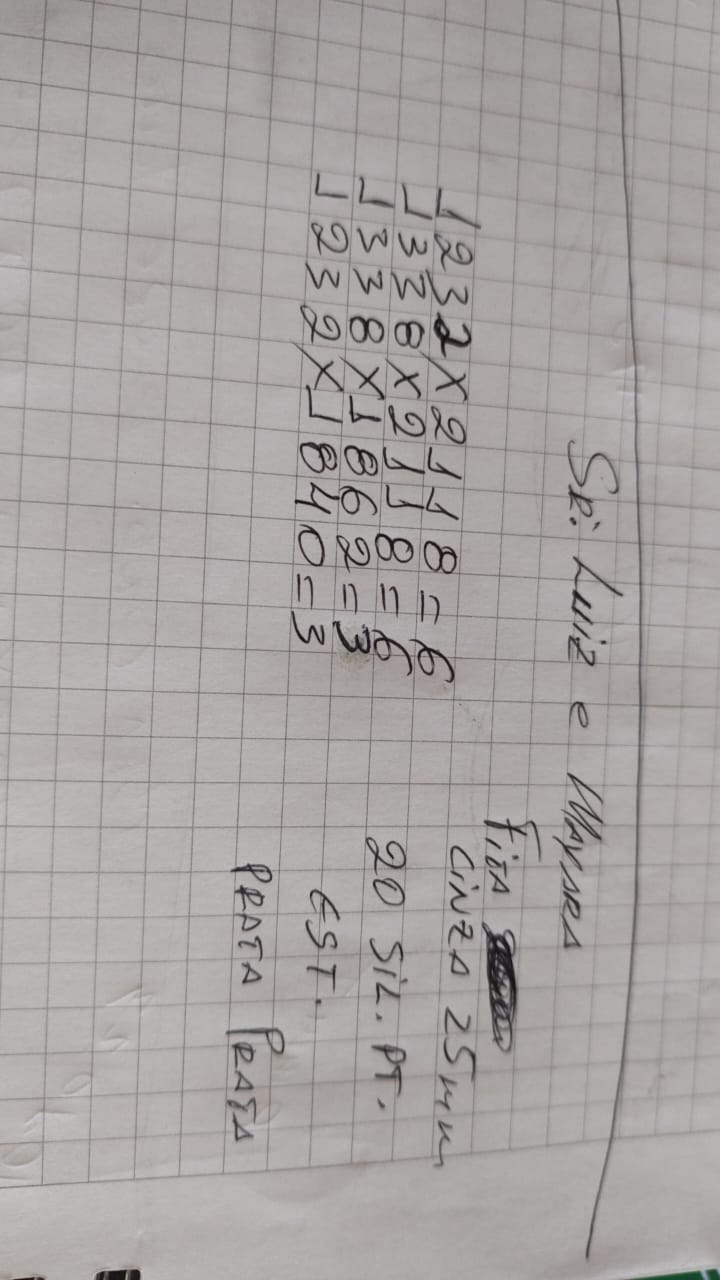 Sr. Luiz e Mayara
1232 X 2118 = 6
1338 X 2118 = 6
1338 X 1862 = 3
1232 X 1840 = 3
Fita
CINZA 25mm
20 SIL. PT.
EST.
PRATA PRATA